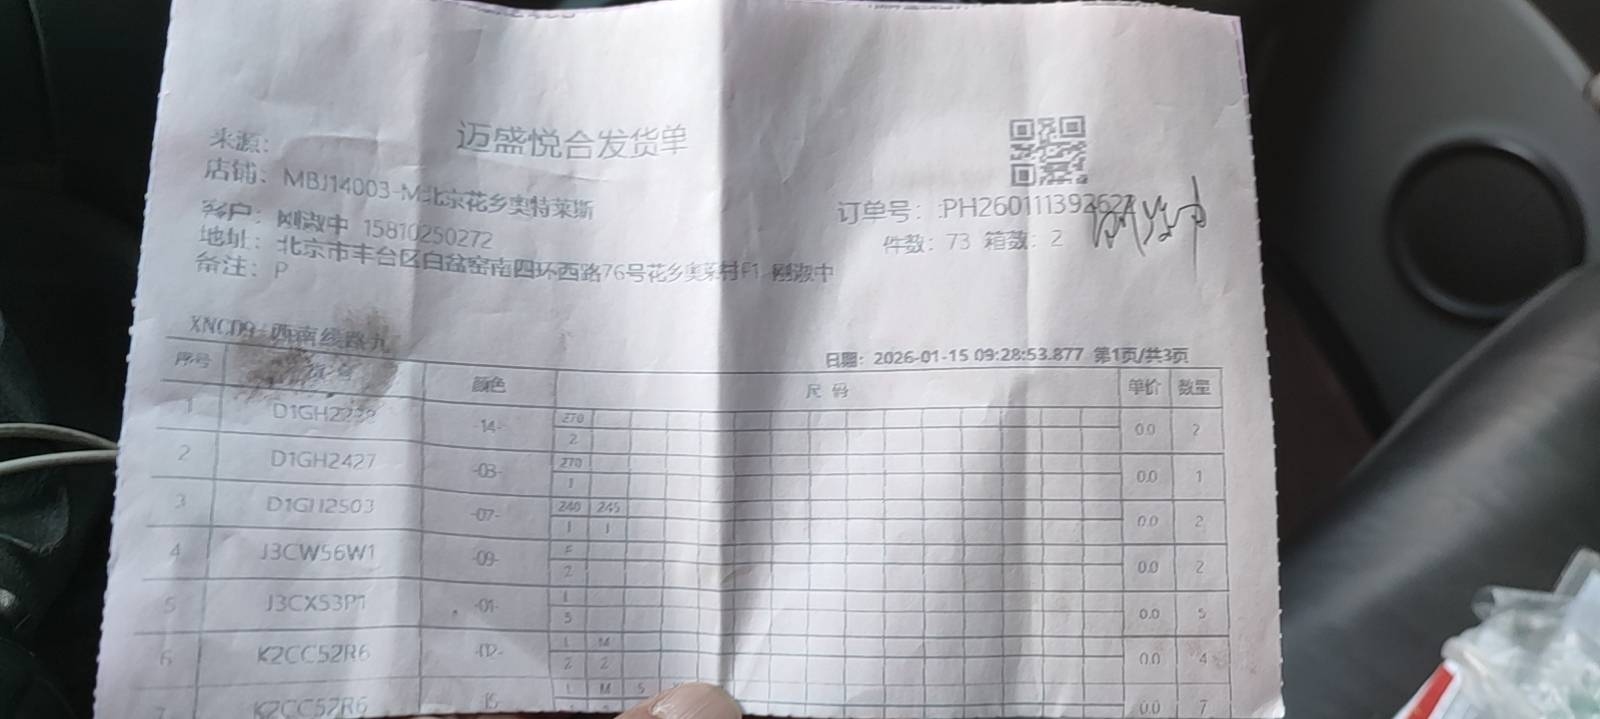 迈盛悦合发货单
来源：
店铺：MBJ14003-M北京花乡奥特莱斯
客户：刚淑中 15810250272
地址：北京市丰台区白盆窑南四环西路76号花乡奥莱村F1 刚淑中
备注：P
订单号：:PH260111392627
件数：73 箱数：2
XNCD9-西南线路九
日期：2026-01-15 09:28:53.877 第1页/共3页
序号 款号 颜色 尺码 单价 数量
1 D1GH2238 -14- 270 0.0 2
2
2 D1GH2427 -03- 270 0.0 1
1
3 D1GH2503 -07- 240 245 0.0 2
1 1
4 J3CW56W1 -09- F 0.0 2
2
5 J3CX53P1 -01- L 0.0 5
5
6 K2CC52R6 -02- L M 0.0 4
2 2
7 K2CC57R6 15 L M S 0.0 7